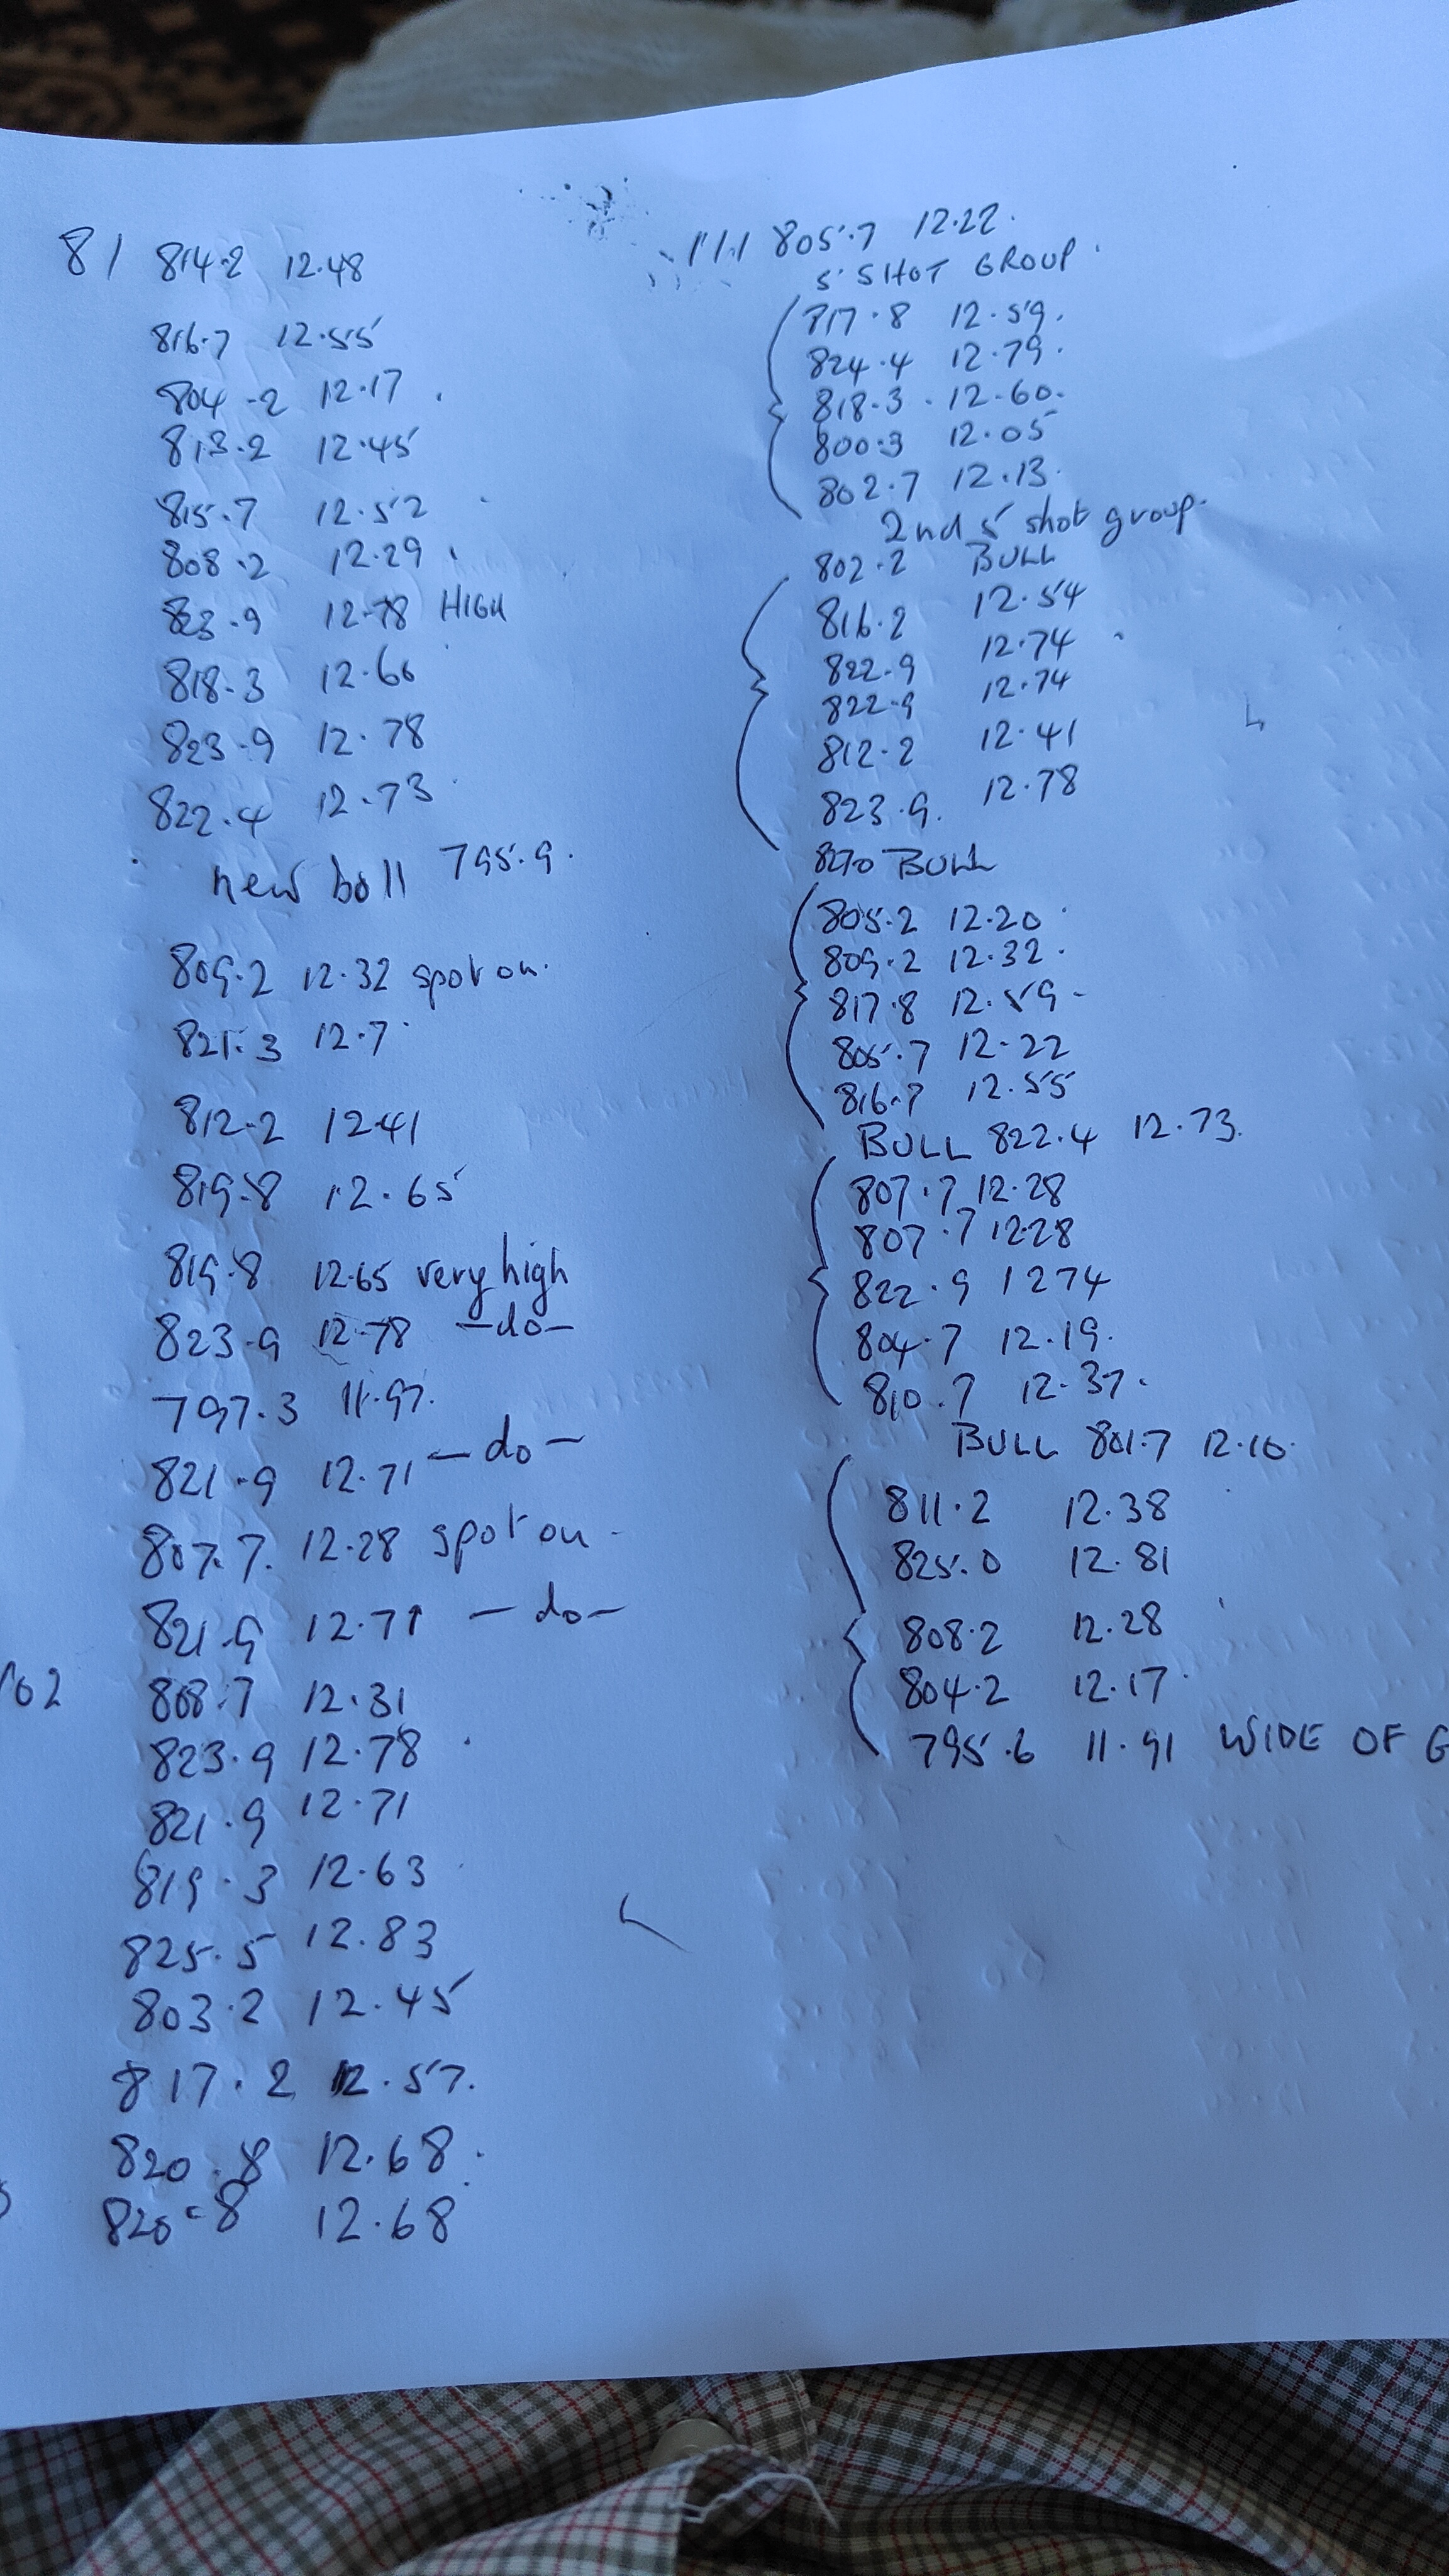 81 814.2 12.48
816.7 12.55
804.2 12.17
813.2 12.45
815.7 12.52
808.2 12.29
823.9 12.78 HIGH
818.3 12.60
823.9 12.78
822.4 12.73
new boll 795.9.
809.2 12.32 spot on.
821.3 12.7
812.2 1241
819.8 12.65
819.8 12.65 very high
823.9 12.78 -do-
797.3 11.97.
821.9 12.71 -do-
807.7. 12.28 spot on -
821.9 12.71 -do-
102 808.7 12.31
823.9 12.78
821.9 12.71
819.3 12.63
825.5 12.83
803.2 12.45
817.2 12.57.
820.8 12.68.
820.8 12.68
111 805.7 12.22.
5 SHOT GROUP.
817.8 12.59.
824.4 12.79.
818.3 - 12.60.
800.3 12.05
802.7 12.13.
2nd 5 shot group.
802.2 BULL
816.2 12.54
822.9 12.74
822.9 12.74
812.2 12.41
823.9. 12.78
BULL
805.2 12.20
809.2 12.32.
817.8 12.59-
805.7 12.22
816.7 12.55
BULL 822.4 12.73.
807.7 12.28
807.7 1228
822.9 1274
804.7 12.19.
810.7 12.37.
BULL 801.7 12.10.
811.2 12.38
825.0 12.81
808.2 12.28
804.2 12.17
795.6 11.91 WIDE OF G